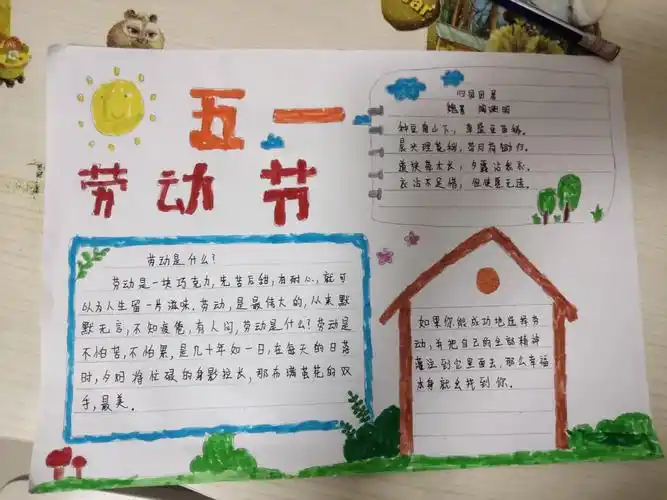 五一
劳动节
归园田居
魏晋 陶渊明
种豆南山下，草盛豆苗稀。
晨兴理荒秽，带月荷锄归。
道狭草木长，夕露沾我衣。
衣沾不足惜，但使愿无违。
劳动是什么？
劳动是一块巧克力，先苦后甜，有耐心，就可
以为人生留一片滋味。劳动，是最伟大的，从来默
默无言，不知疲倦，有人问，劳动是什么？劳动是
不怕苦，不怕累，是几十年如一日，在每天的日落
时，夕阳将忙碌的身影拉长，那布满茧花的双
手，最美。
如果你能成功地选择劳
动，并把自己的全部精神
灌注到它里面去，那么幸福
本身就会找到你。